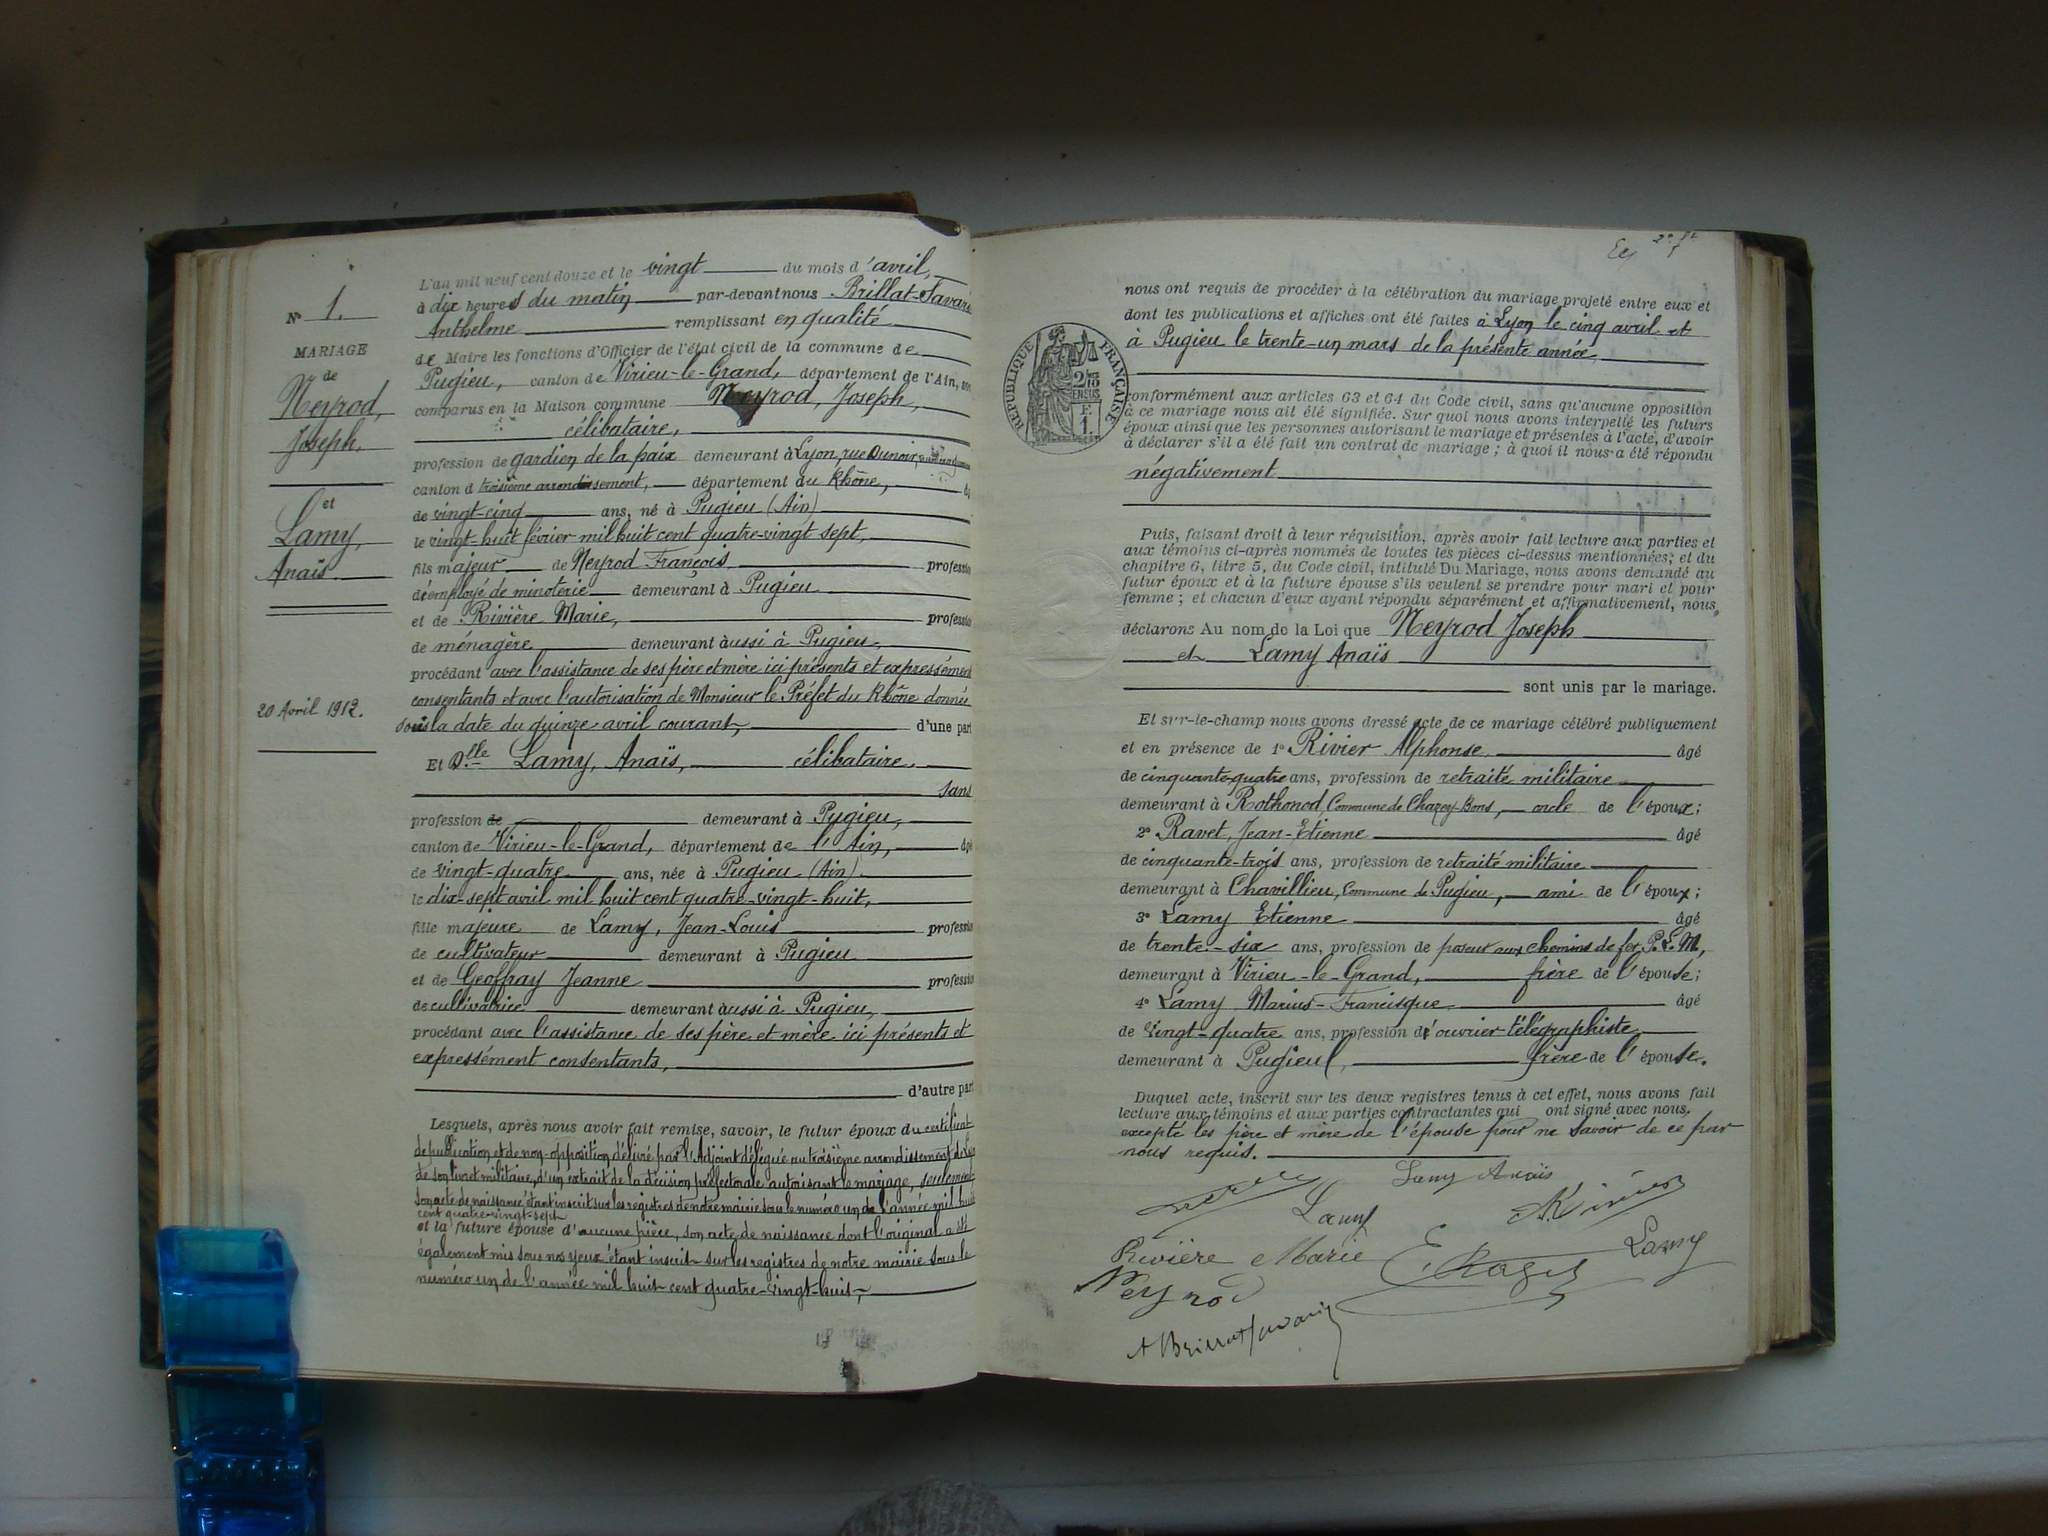 N° 1.
MARIAGE
de
Neyrod,
Joseph,
et
Lamy,
Anaïs
20 Avril 1912.
L'an mil neuf cent douze et le vingt du mois d'avril,
à dix heures du matin par-devant nous Brillat-Savari
Anthelme remplissant en qualité
de Maire les fonctions d'Officier de l'état civil de la commune de
Pugieu, canton de Virieu-le-Grand, département de l'Ain,
comparus en la Maison commune Neyrod, Joseph,
célibataire,
profession de gardien de la paix demeurant à Lyon, rue Dunoir,
canton d troisième arrondissement, département du Rhône,
de vingt-cinq ans, né à Pugieu (Ain)
le vingt-huit février mil huit cent quatre-vingt sept,
fils majeur de Neyrod François professio
d'employé de minoterie demeurant à Pugieu
et de Rivière Marie, professio
de ménagère demeurant aussi à Pugieu,
procédant avec l'assistance de ses père et mère ici présents et expressément
consentants et avec l'autorisation de Monsieur le Préfet du Rhône donnée
sous la date du quinze avril courant, d'une part
Et Dlle Lamy, Anaïs, célibataire,
sans
profession de demeurant à Pugieu,
canton de Virieu-le-Grand, département de l'Ain, âgé
de vingt-quatre ans, née à Pugieu (Ain)
le dix-sept avril mil huit cent quatre-vingt-huit,
fille majeure de Lamy, Jean-Louis professio
de cultivateur demeurant à Pugieu
et de Geoffray Jeanne professio
de cultivatrice demeurant aussi à Pugieu,
procédant avec l'assistance de ses père et mère ici présents et
expressément consentants,
d'autre part
Lesquels, après nous avoir fait remise, savoir, le futur époux du certificat
de publication et de non-opposition délivré par l'Adjoint délégué au troisième arrondissement de
de son livret militaire, d'un extrait de la décision préfectorale autorisant le mariage, seulement
son acte de naissance étant inscrit sur les registres de notre mairie sous le numéro un de l'année mil huit
cent quatre-vingt-sept
et la future épouse d'aucune pièce, son acte de naissance dont l'original a été
également mis sous nos yeux étant inscrit sur les registres de notre mairie sous le
numéro un de l'année mil huit cent quatre-vingt-huit,
nous ont requis de procéder à la célébration du mariage projeté entre eux et
dont les publications et affiches ont été faites à Lyon le cinq avril et
à Pugieu le trente-un mars de la présente année
RÉPUBLIQUE FRANÇAISE
conformément aux articles 63 et 64 du Code civil, sans qu'aucune opposition
à ce mariage nous ait été signifiée. Sur quoi nous avons interpellé les futurs
époux ainsi que les personnes autorisant le mariage et présentes à l'acte, d'avoir
à déclarer s'il a été fait un contrat de mariage ; à quoi il nous a été répondu
négativement
Puis, faisant droit à leur réquisition, après avoir fait lecture aux parties et
aux témoins ci-après nommés de toutes les pièces ci-dessus mentionnées; et du
chapitre 6, titre 5, du Code civil, intitulé Du Mariage, nous avons demandé au
futur époux et à la future épouse s'ils veulent se prendre pour mari et pour
femme ; et chacun d'eux ayant répondu séparément et affirmativement, nous
déclarons Au nom de la Loi que Neyrod Joseph
et Lamy Anaïs
sont unis par le mariage.
Et sur-le-champ nous avons dressé acte de ce mariage célébré publiquement
et en présence de 1° Rivier Alphonse âgé
de cinquante-quatre ans, profession de retraité militaire
demeurant à Rothonod, Commune de Chazey-Bons, oncle de l'époux;
2° Ravet, Jean-Etienne âgé
de cinquante-trois ans, profession de retraité militaire
demeurant à Chavillieu, Commune de Pugieu, ami de l'époux;
3° Lamy Etienne âgé
de trente-six ans, profession de poseur aux chemins de fer P.L.M,
demeurant à Virieu-le-Grand, frère de l'épouse;
4° Lamy Marius-Francisque âgé
de vingt-quatre ans, profession d'ouvrier télégraphiste
demeurant à Pugieu, frère de l'épouse.
Duquel acte, inscrit sur les deux registres tenus à cet effet, nous avons fait
lecture aux témoins et aux parties contractantes qui ont signé avec nous,
excepté les père et mère de l'épouse pour ne savoir de ce par
nous requis.
Lamy Anaïs
Lamy
Rivière Marie
Lamy
Neyrod
A Brillat Savarin